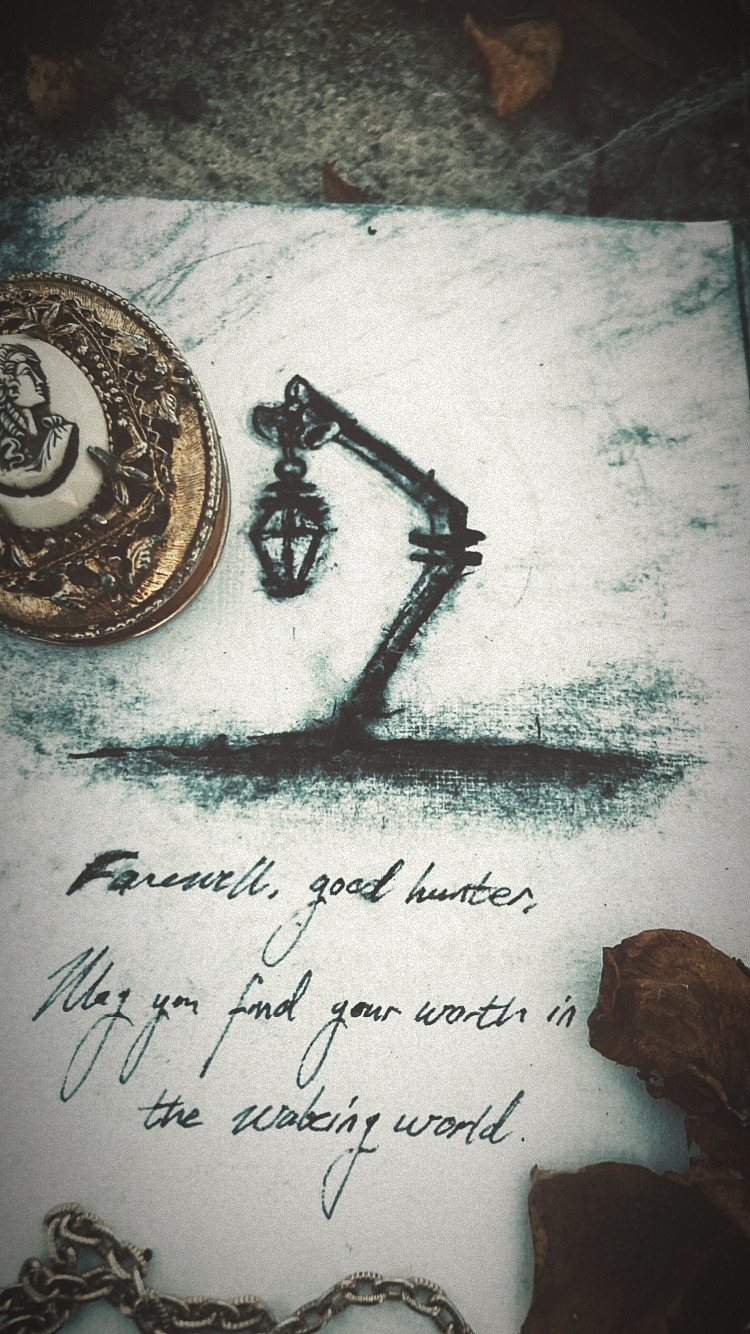 Farewell, good hunter,
May you find your worth in
the waking world.